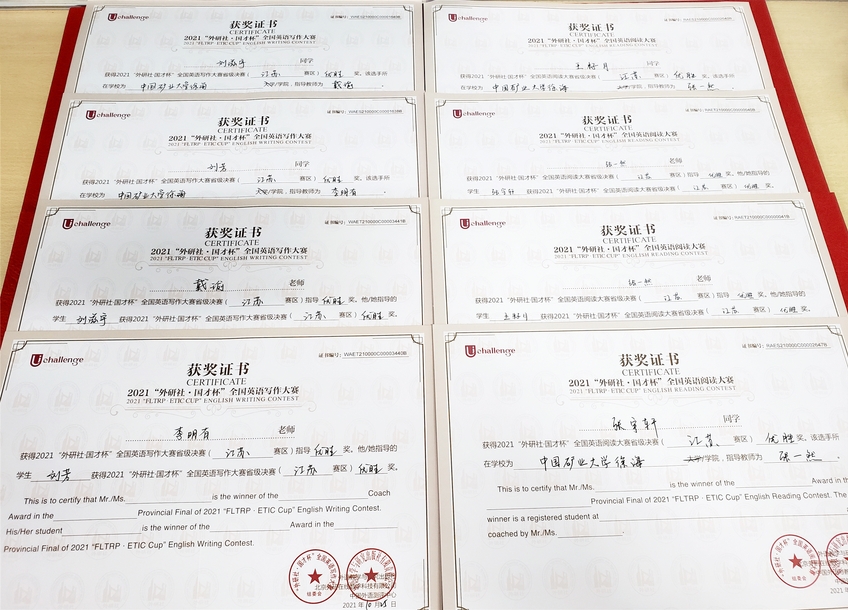 Uchallenge
获奖证书
CERTIFICATE
2021 “外研社·国才杯” 全国英语写作大赛
2021 "FLTRP · ETIC CUP" ENGLISH WRITING CONTEST
同学
获得2021 “外研社·国才杯” 全国英语写作大赛省级决赛（ 江苏 赛区）优胜 奖。该选手所
在学校为 中国矿业大学徐海 学院，指导教师为 戴瑜 。
Uchallenge
获奖证书
CERTIFICATE
2021 “外研社·国才杯” 全国英语阅读大赛
2021 "FLTRP · ETIC CUP" ENGLISH READING CONTEST
同学
获得2021 “外研社·国才杯” 全国英语阅读大赛省级决赛（ 江苏 赛区）优胜 奖。该选手所
在学校为 中国矿业大学徐海 学院，指导教师为 张一然 。
Uchallenge
获奖证书
CERTIFICATE
2021 “外研社·国才杯” 全国英语写作大赛
2021 "FLTRP · ETIC CUP" ENGLISH WRITING CONTEST
刘芳 同学
获得2021 “外研社·国才杯” 全国英语写作大赛省级决赛（ 江苏 赛区）优胜 奖。该选手所
在学校为 中国矿业大学徐海 学院，指导教师为 李明有 。
Uchallenge
获奖证书
CERTIFICATE
2021 “外研社·国才杯” 全国英语阅读大赛
2021 "FLTRP · ETIC CUP" ENGLISH READING CONTEST
张一然 老师
获得2021 “外研社·国才杯” 全国英语阅读大赛省级决赛（ 江苏 赛区）指导 优胜 奖。他/她指导的
学生 张宇轩 获得2021 “外研社·国才杯” 全国英语阅读大赛省级决赛（ 江苏 赛区）优胜 奖。
Uchallenge
证书编号：WAET210000C00003448B
获奖证书
CERTIFICATE
2021 “外研社·国才杯” 全国英语写作大赛
2021 "FLTRP · ETIC CUP" ENGLISH WRITING CONTEST
戴瑜 老师
获得2021 “外研社·国才杯” 全国英语写作大赛省级决赛（ 江苏 赛区）指导 优胜 奖。他/她指导的
学生 获得2021 “外研社·国才杯” 全国英语写作大赛省级决赛（ 江苏 赛区）优胜 奖。
Uchallenge
获奖证书
CERTIFICATE
2021 “外研社·国才杯” 全国英语阅读大赛
2021 "FLTRP · ETIC CUP" ENGLISH READING CONTEST
张一然 老师
获得2021 “外研社·国才杯” 全国英语阅读大赛省级决赛（ 江苏 赛区）指导 优胜 奖。他/她指导的
学生 获得2021 “外研社·国才杯” 全国英语阅读大赛省级决赛（ 江苏 赛区）优胜 奖。
Uchallenge
证书编号：WAET210000C00003443B
获奖证书
CERTIFICATE
2021 “外研社·国才杯” 全国英语写作大赛
2021 "FLTRP · ETIC CUP" ENGLISH WRITING CONTEST
李明有 老师
获得2021 “外研社·国才杯” 全国英语写作大赛省级决赛（ 江苏 赛区）指导 优胜 奖。他/她指导的
学生 刘芳 获得2021 “外研社·国才杯” 全国英语写作大赛省级决赛（ 江苏 赛区）优胜 奖。
This is to certify that Mr./Ms. is the winner of the Coach
Award in the Provincial Final of 2021 "FLTRP · ETIC Cup" English Writing Contest.
His/Her student is the winner of the Award in the
Provincial Final of 2021 "FLTRP · ETIC Cup" English Writing Contest.
组委会
中国外语测评中心
2021 年 10 月 25 日
Uchallenge
证书编号：WAES210000C00002647B
获奖证书
CERTIFICATE
2021 “外研社·国才杯” 全国英语阅读大赛
2021 "FLTRP · ETIC CUP" ENGLISH READING CONTEST
张宇轩 同学
获得2021 “外研社·国才杯” 全国英语阅读大赛省级决赛（ 江苏 赛区）优胜 奖。该选手所
在学校为 中国矿业大学徐海 大学/学院，指导教师为 张一然 。
This is to certify that Mr./Ms. is the winner of the
Provincial Final of 2021 "FLTRP · ETIC Cup" English Reading Contest. The
winner is a registered student at
coached by Mr./Ms.
组委会